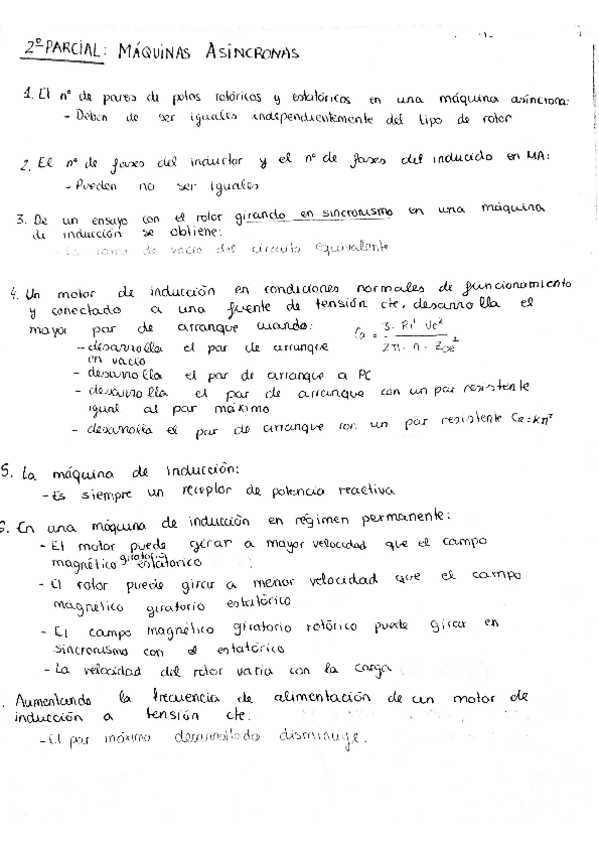 2º PARCIAL: MÁQUINAS ASINCRONAS
1. El nº de pares de polos rotóricos y estatóricos en una máquina asíncrona:
- Deben de ser iguales independientemente del tipo de rotor
2. El nº de fases del inductor y el nº de fases del inducido en MA:
- Pueden no ser iguales
3. De un ensayo con el rotor girando en sincronismo en una máquina
de inducción se obtiene:
- La rama de vacio del circuito equivalente
4. Un motor de inducción en condiciones normales de funcionamiento
y conectado a una fuente de tensión cte, desarrolla el
mayor par de arranque cuando:
- desarrolla el par de arranque
en vacio
- desarrolla el par de arranque a PC
- desarrolla el par de arranque con un par resistente
igual al par máximo
- desarrolla el par de arranque con un par resistente CR=kn²
5. La máquina de inducción:
- Es siempre un receptor de potencia reactiva
6. En una máquina de inducción en régimen permanente:
- El motor puede girar a mayor velocidad que el campo
magnético giratorio estatórico
- El rotor puede girar a menor velocidad que el campo
magnético giratorio estatórico
- El campo magnético giratorio rotórico puede girar en
sincronismo con el estatórico
- La velocidad del rotor varia con la carga
. Aumentando la frecuencia de alimentación de un motor de
inducción a tensión cte:
- El par máximo desarrollado disminuye.